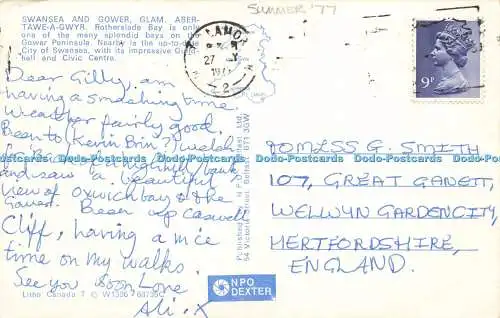 SUMMER '77
SWANSEA AND GOWER, GLAM. ABER-
TAWE-A-GWYR. Rotherslade Bay is only
one of the many splendid bays on the
Gower Peninsula. Nearby is the up-to-date
City of Swansea, with its impressive Guild-
hall and Civic Centre.
LAMOR
27
197
2
9P
Dear Gilly, am
having a smashing time.
Weather fairly good.
Been to (Kevin Brin?) Welsh
and saw a beautiful
view of Oxwich bay & the
Gower. Been up Caswell
Cliff, having a nice
time on my walks.
See you soon Love
Ali. X
Litho Canada T © W1306
54 Victoria Street Belfast BT1 3GW
NPO
DEXTER
TO MISS G. SMITH
107, GREAT GANETT,
WELLWYN GARDEN CITY,
HERTFORDSHIRE,
ENGLAND.
Dodo-Postcards Dodo-Postcards Dodo-Postcards Dodo-Postcards Dodo-Postcards